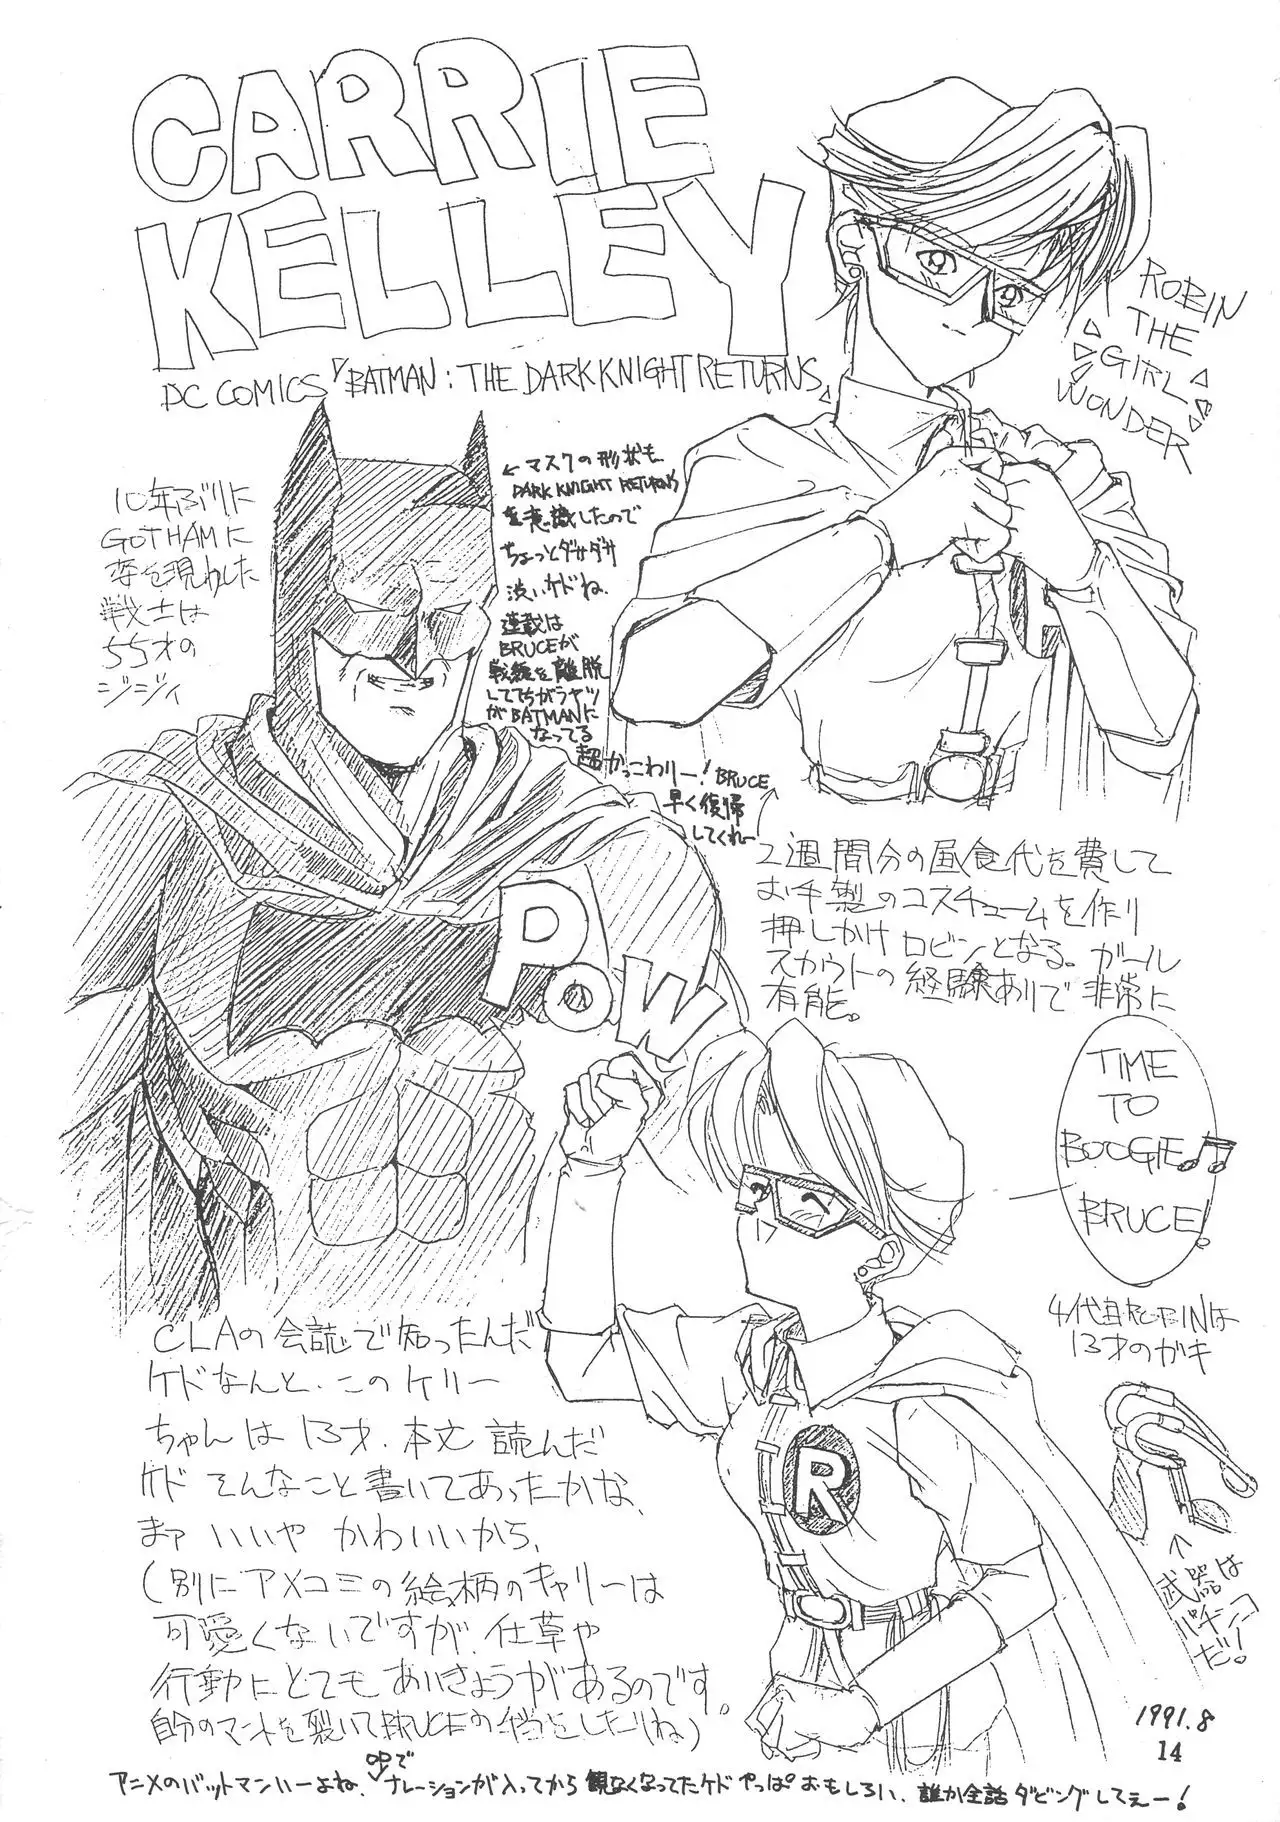 CARRIE
KELLEY
DC COMICS『BATMAN : THE DARK KNIGHT RETURNS』
ROBIN
THE
GIRL
WONDER
10年ぶりに
GOTHAMに
姿を現わした
戦士は
55才の
ジジィ
← マスクの形状も
DARK KNIGHT RETURNS
を意識したので
ちょっとダサダサ
渋いケドね.
連載は
BRUCEが
戦線を離脱
しててちがうヤツ
がBATMANに
なってる
超かっこわりー! BRUCE
早く復帰
してくれー
2週間分の昼食代を費して
お手製のコスチュームを作り
押しかけロビンとなる。ガール
スカウトの経験ありで非常に
有能。
POW
TIME
TO
BOOGIE♫
BRUCE!
4代目ROBINは
13才のガキ
R
↑
武器は
パチンコ
だ!
CLAの会誌で知ったんだ
ケドなんと、このケリー
ちゃんは13才. 本文読んだ
ケド そんなこと書いてあったかな、
まァ いいや かわいいから、
(別にアメコミの絵柄のキャリーは
可愛くないですが、仕草や
行動にとてもあいきょうがあるのです。
自分のマントを裂いてBRUCEの
したりね)
1991.8
14
アニメのバットマンいーよね、
ナレーションが入ってから 観なくなってたケド やっぱ おもしろい、誰か全話ダビングしてぇー!